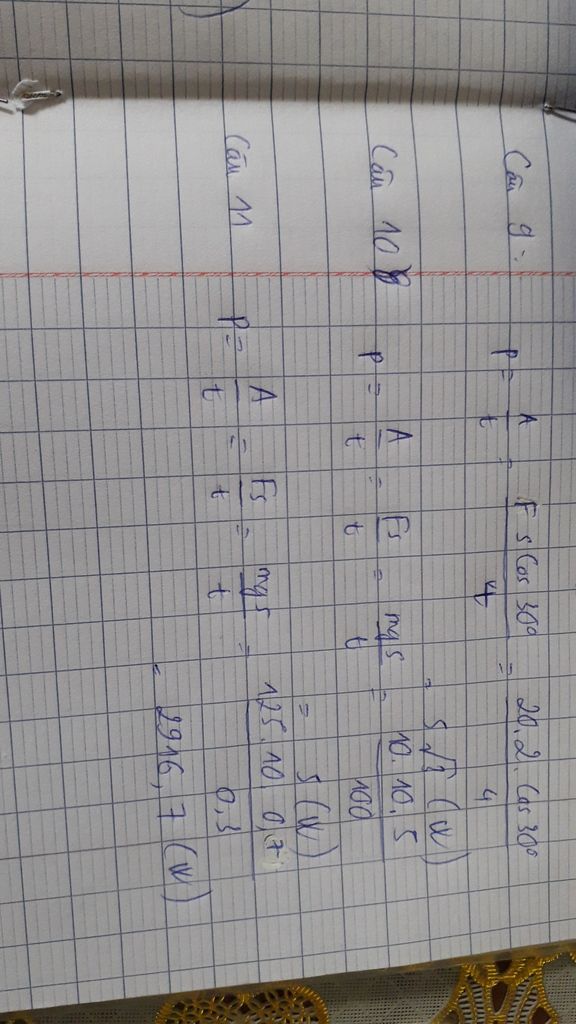 Câu 9:
P = A/t = F s Cos 30°/t = 20.2.Cos 30°/4
= 5√3 (W)
Câu 10
P = A/t = Fs/t = mgs/t = 10.10.5/100
= 5 (W)
Câu 11
P = A/t = Fs/t = mgs/t = 125.10.0,7/0,3
= 2916,7 (W)